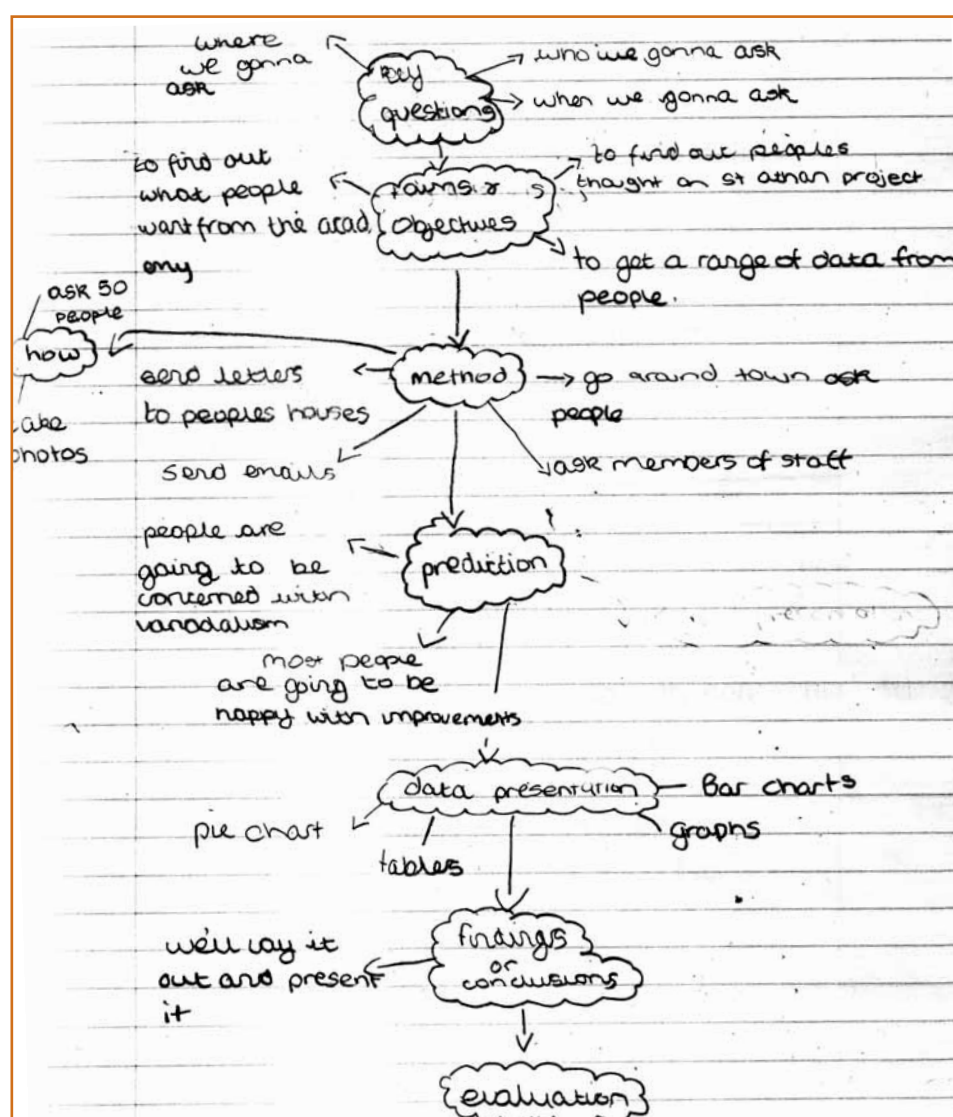 where
we gonna
ask
key
questions
who we gonna ask
when we gonna ask
to find out
what people
want from the acad
emy
objectives
to find out peoples
thought on st athan project
to get a range of data from
people.
ask 50
people
how
photos
send letters
to peoples houses
send emails
method
go around town ask
people
ask members of staff
people are
going to be
concerned with
vanadalism
prediction
most people
are going to be
happy with improvements
data presentation
Bar charts
graphs
pie chart
tables
findings
or
conclusions
we'll lay it
out and present
it
evaluation